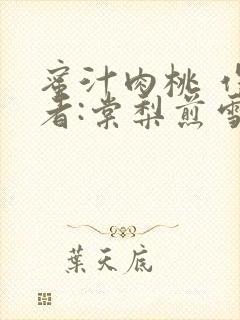 蜜汁肉桃 作
者:棠梨煎雪
葉天底